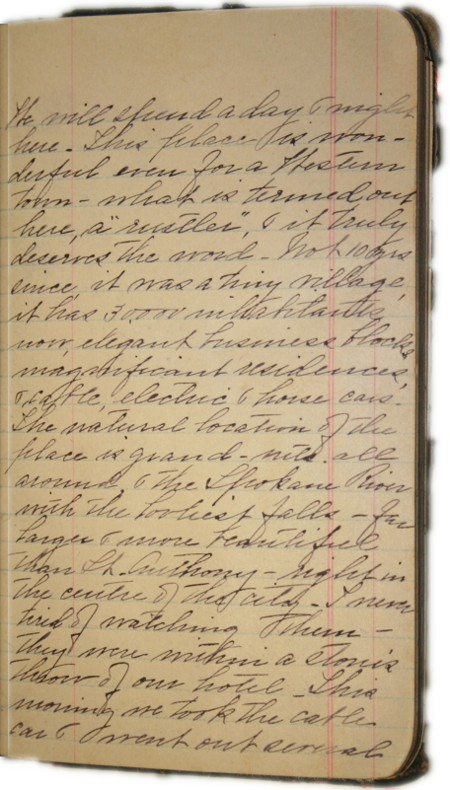 We will spend a day & night
here - This place is won-
derful even for a Western
town - what is termed out
here, a "rustler", & it truly
deserves the word - Not 10 yrs
since, it was a tiny village,
it has 30000 inhabitants,
now, elegant business blocks
magnificant residences,
& cable, electric & horse cars.
The natural location of the
place is grand - mts. all
around & the Spokane River
with the lovliest falls - far
larger & more beautiful
than St. Anthony - right in
the centre of the city - I never
tired of watching them -
they were within a stone's
throw of our hotel - This
morning we took the cable
car & went out several